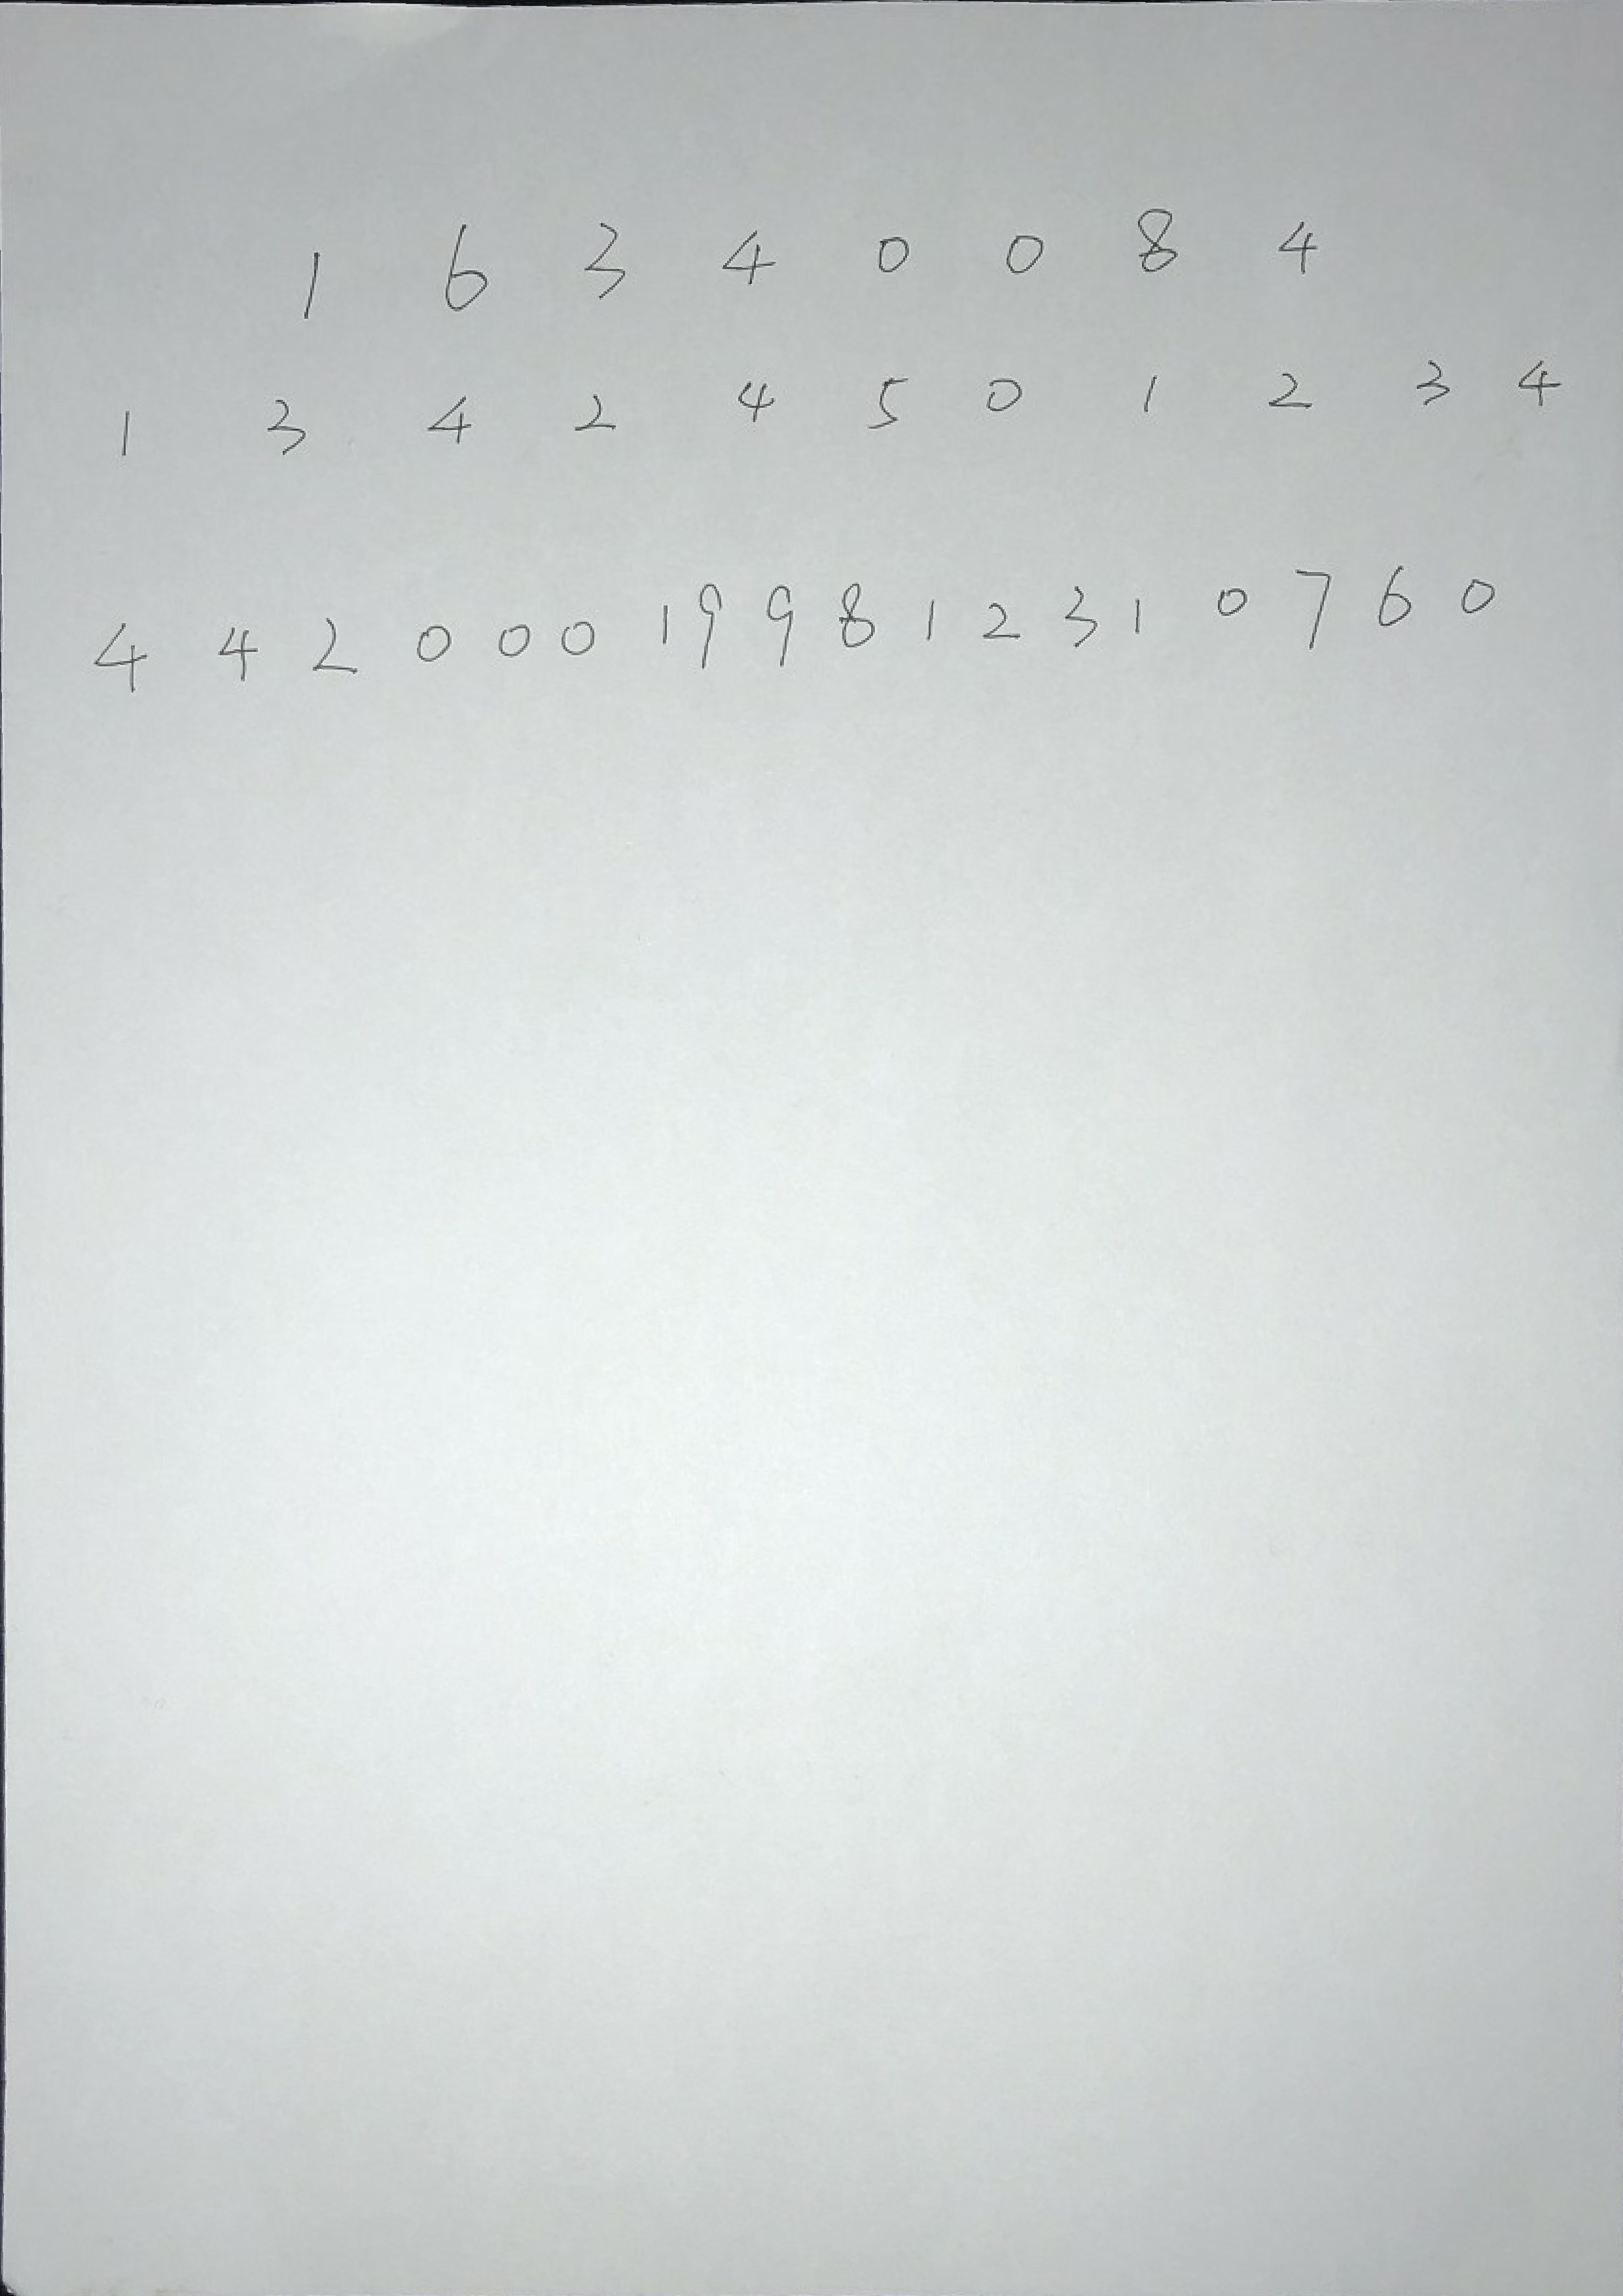 1 6 3 4 0 0 8 4
1 3 4 2 4 5 0 1 2 3 4
4 4 2 0 0 0 1 9 9 8 1 2 3 1 0 7 6 0